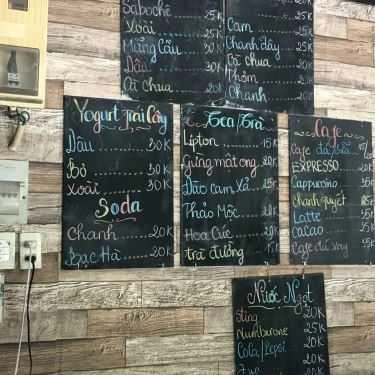 Sabochê 25K
Xoài 25K
Mãng Cầu 30K
Dâu 30K
Cà chua 25K
25K
Cam 25K
Chanh dây 25K
Cà chua 20K
Thơm
Chanh
Yogurt Trái Cây
Dâu 30K
Bò 30K
Xoài 30K
Soda
Chanh 20K
Bạc Hà 20K
Tea/Trà
Lipton 15K
Gừng mật ong 20K
Đào Cam Sả 25K
Thảo Mộc
Hoa Cúc
trà đường
Cafe
Cafe
EXPRESSO 20K
Cappuccino 35K
Latte 35K
Cacao 35K
Nước Ngọt
Sting 20K
Numberone 25K
Cola/Pepsi 20K
20K